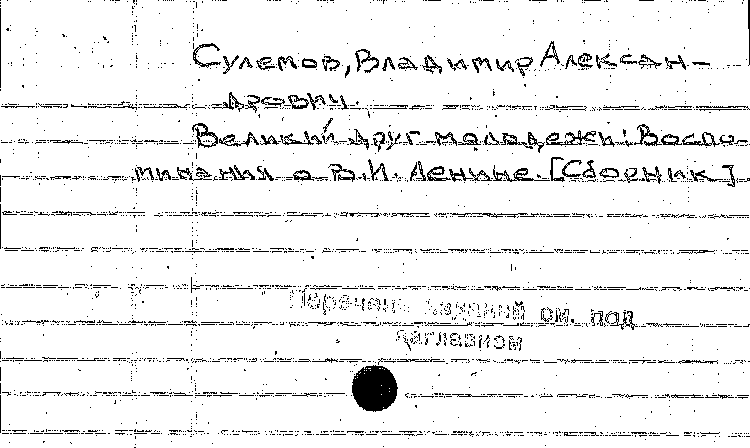 Сулемов, Владимир Алексан-
дрович.
Великий друг молодежи: Воспо-
минания о В.И. Ленине. [Сборник]
Перечень изданий см. под
заглавием